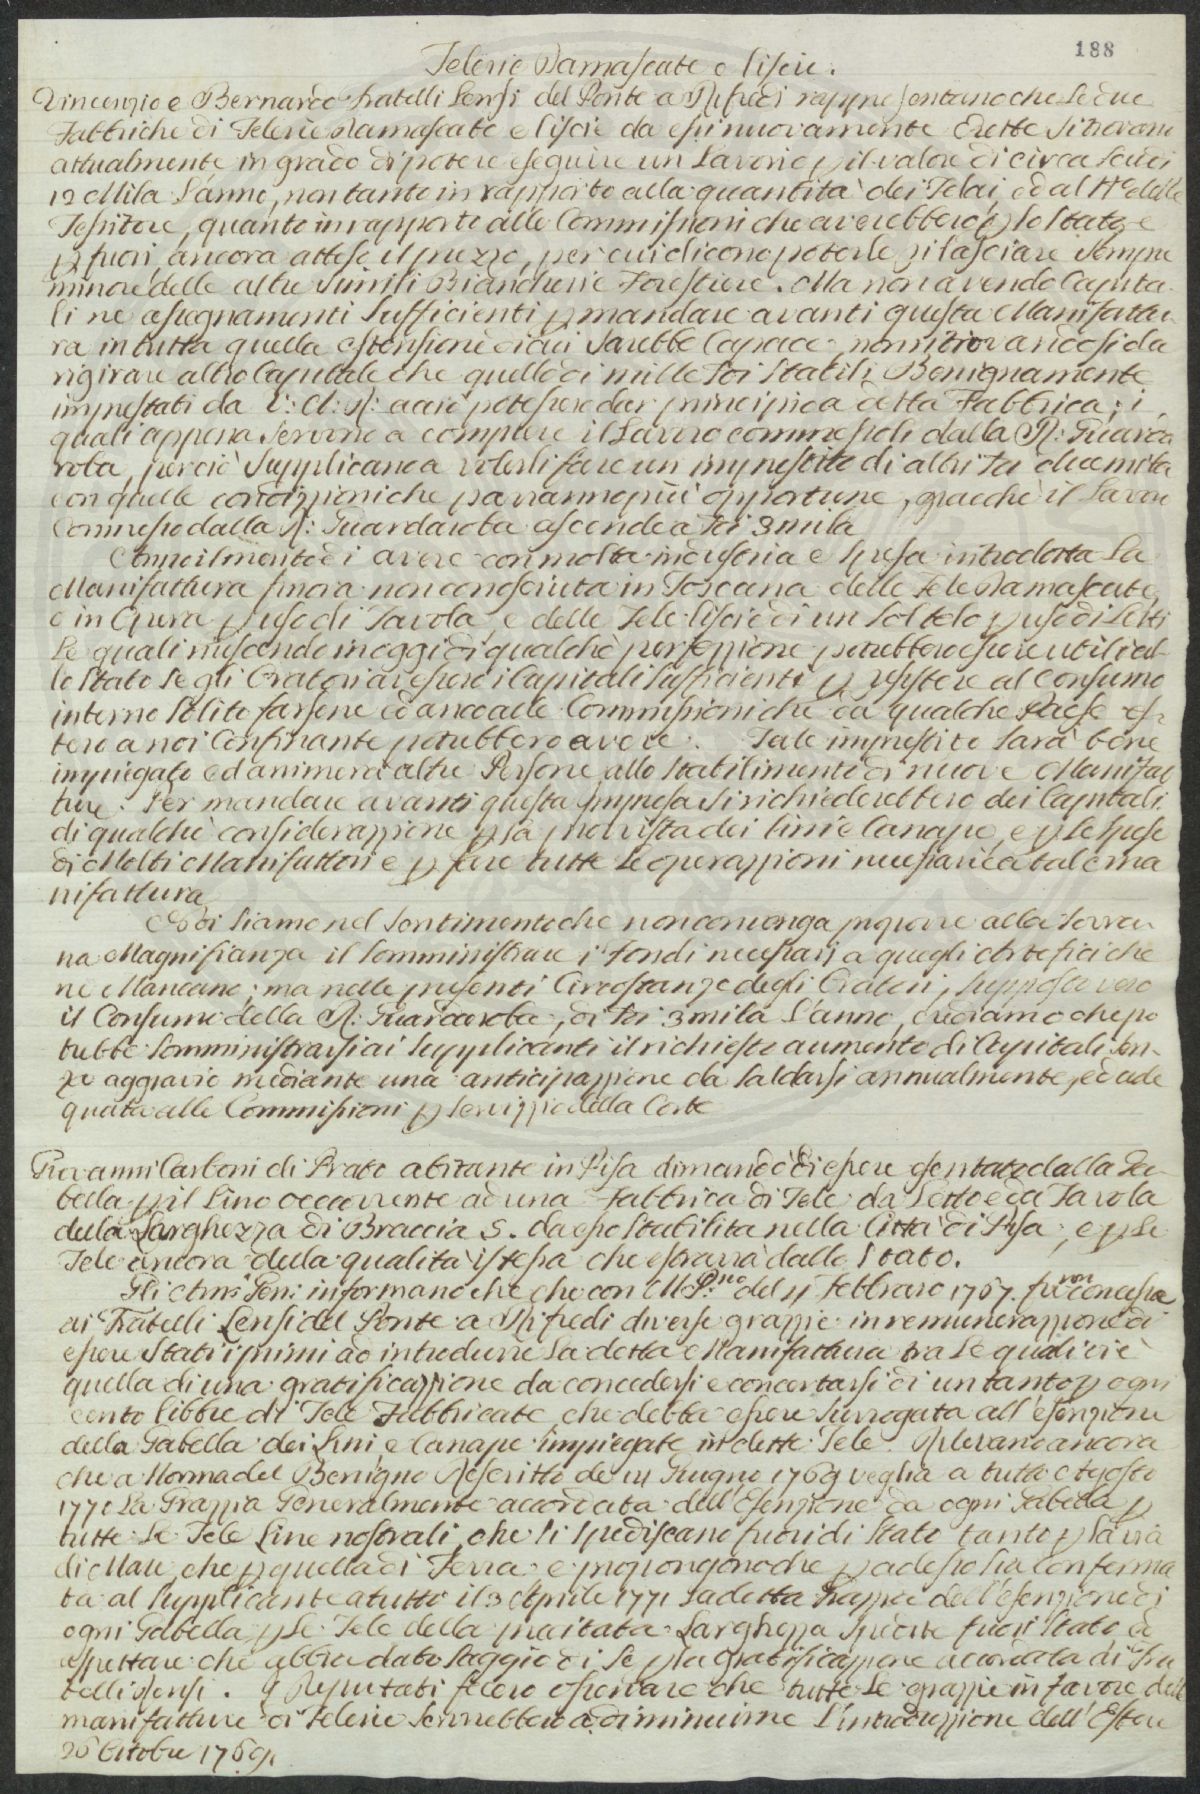 188
Telerie Damascate e liscie.
Vincenzio e Bernardo fratelli Lensi del Ponte a Rifredi rappresentano che le due
Fabbriche di Telerie Damascate e liscie da essi nuovamente Erette si trovano
attualmente in grado di potere eseguire un Lavorio p il valore di circa Scudi
12 Mila L'anno, non tanto in rapporto alla quantita dei Telai, ed al N.o delle
Tessitore, quanto in rapporto alle Commissioni che averebbero p lo Stato, e
p fuori, ancora atteso il prezzo, per cui dicono poterle rilasciare sempre
minore delle altre simili Biancherie Forestiere. Ma non avendo Capita-
li ne assegnamenti sufficienti p mandare avanti questa Manifattu-
ra in tutta quella estensione di cui sarebbe Capace, non ritrovandosi da
rigirare altro Capitale che quello di mille Sdi Stabili Benignamente
imprestati da V: A: R: acciò potessero dar principio a detta Fabbrica; i
quali appena servono a compiere il Lavoro commessoli dalla R: Guarda
roba, perciò supplicano a volerli fare un imprestito di altri Sdi diecimila
con quelle condizzioni che parranno più opportune, giacchè il Lavoro
Commesso dalla R: Guardaroba ascende a Sdi 3 mila
di avere con molta industria e spesa introdotta La
Manifattura finora non conosciuta in Toscana delle Tele Damascate,
e in Opera p uso di Tavola, e delle Tele liscie di un sol telo p uso di Letti
Le quali riuscendo in oggi di qualche perfezzione potrebbero essere utili al-
lo Stato se gli Oratori avessero i Capitali sufficienti p resistere al Consumo
interno solito farsene ed anco alle Commissioni che da qualche Paese es-
tero a noi Confinante potrebbero avere. Tale imprestito sarà bene
impiegato ed animerà altre Persone allo stabilimento di nuove Manifat
ture. Per mandare avanti questa impresa si richiederebbero dei Capitali
di qualche considerazzione p la provvista dei lini e Canape, e p le spese
di Molti Manifattori e p fare tutte le operazzioni necessarie a tale ma
nifattura
Noi siamo nel sentimento che non convenga proporre alla Sovra-
na Magnificenza il somministrare i fondi necessarj a quegli Artefici che
ne Mancano; ma nelle presenti Circostanze degli Oratori, supposto vero
il Consumo della R: Guardaroba, di Sdi 3 mila L'anno, crediamo che po
trebbe somministrarsi ai supplicanti il richiesto aumento di Capitali sen-
za aggravio mediante una anticipazzione da saldarsi annualmente, ed ade
quata alle Commissioni p servizzio della Corte
Giovanni Carboni di Prato abitante in Pisa dimandò di essere esentato dalla Ga-
bella p il Lino occorrente ad una Fabbrica di Tele da Letto e da Tavola
della Larghezza di Braccia 5. da esso stabilita nella Città di Pisa, e p le
Tele ancora della qualità istessa che estrarrà dallo Stato.
Gli informano che che con del 11 Febbraro 1767. furon concesse
ai Fratelli Lensi del Ponte a Rifredi diverse grazzie in remunerazzione di
essere stati i primi ad introdurre la detta Manifattura tra le quali vi è
quella di una gratificazzione da concedersi e concertarsi di un tanto p ogni
cento libbre di Tele Fabbricate che debba essere surrogata all' esenzione
della Gabella dei Lini e Canape impiegate in dette Tele. Rilevano ancora
che a Norma del Benigno Rescritto de 14 Giugno 1769 veglia a tutto Agosto
1771 La Grazzia Generalmente accordata dell' Esenzione da ogni Gabella p
tutte le Tele Line nostrali, che si spediscano fuori di Stato tanto p la via
di Mare, che p quella di Terra e propongono che p adesso sia conferma
ta al supplicante a tutto il 3 Aprile 1771 la detta Grazzia dell' esenzione di
ogni Gabella p le Tele della precitata Larghezza spedite fuori Stato ed
aspettare che abbia dato saggio di se p la gratificazzione accordata ai Fra
telli Lensi. I Deputati fecero osservare che tutte le grazzie in favore delle
manifatture di Telerie servirebbero a diminuirne L'introduzzione dell' Estere
26 Ottobre 1769.